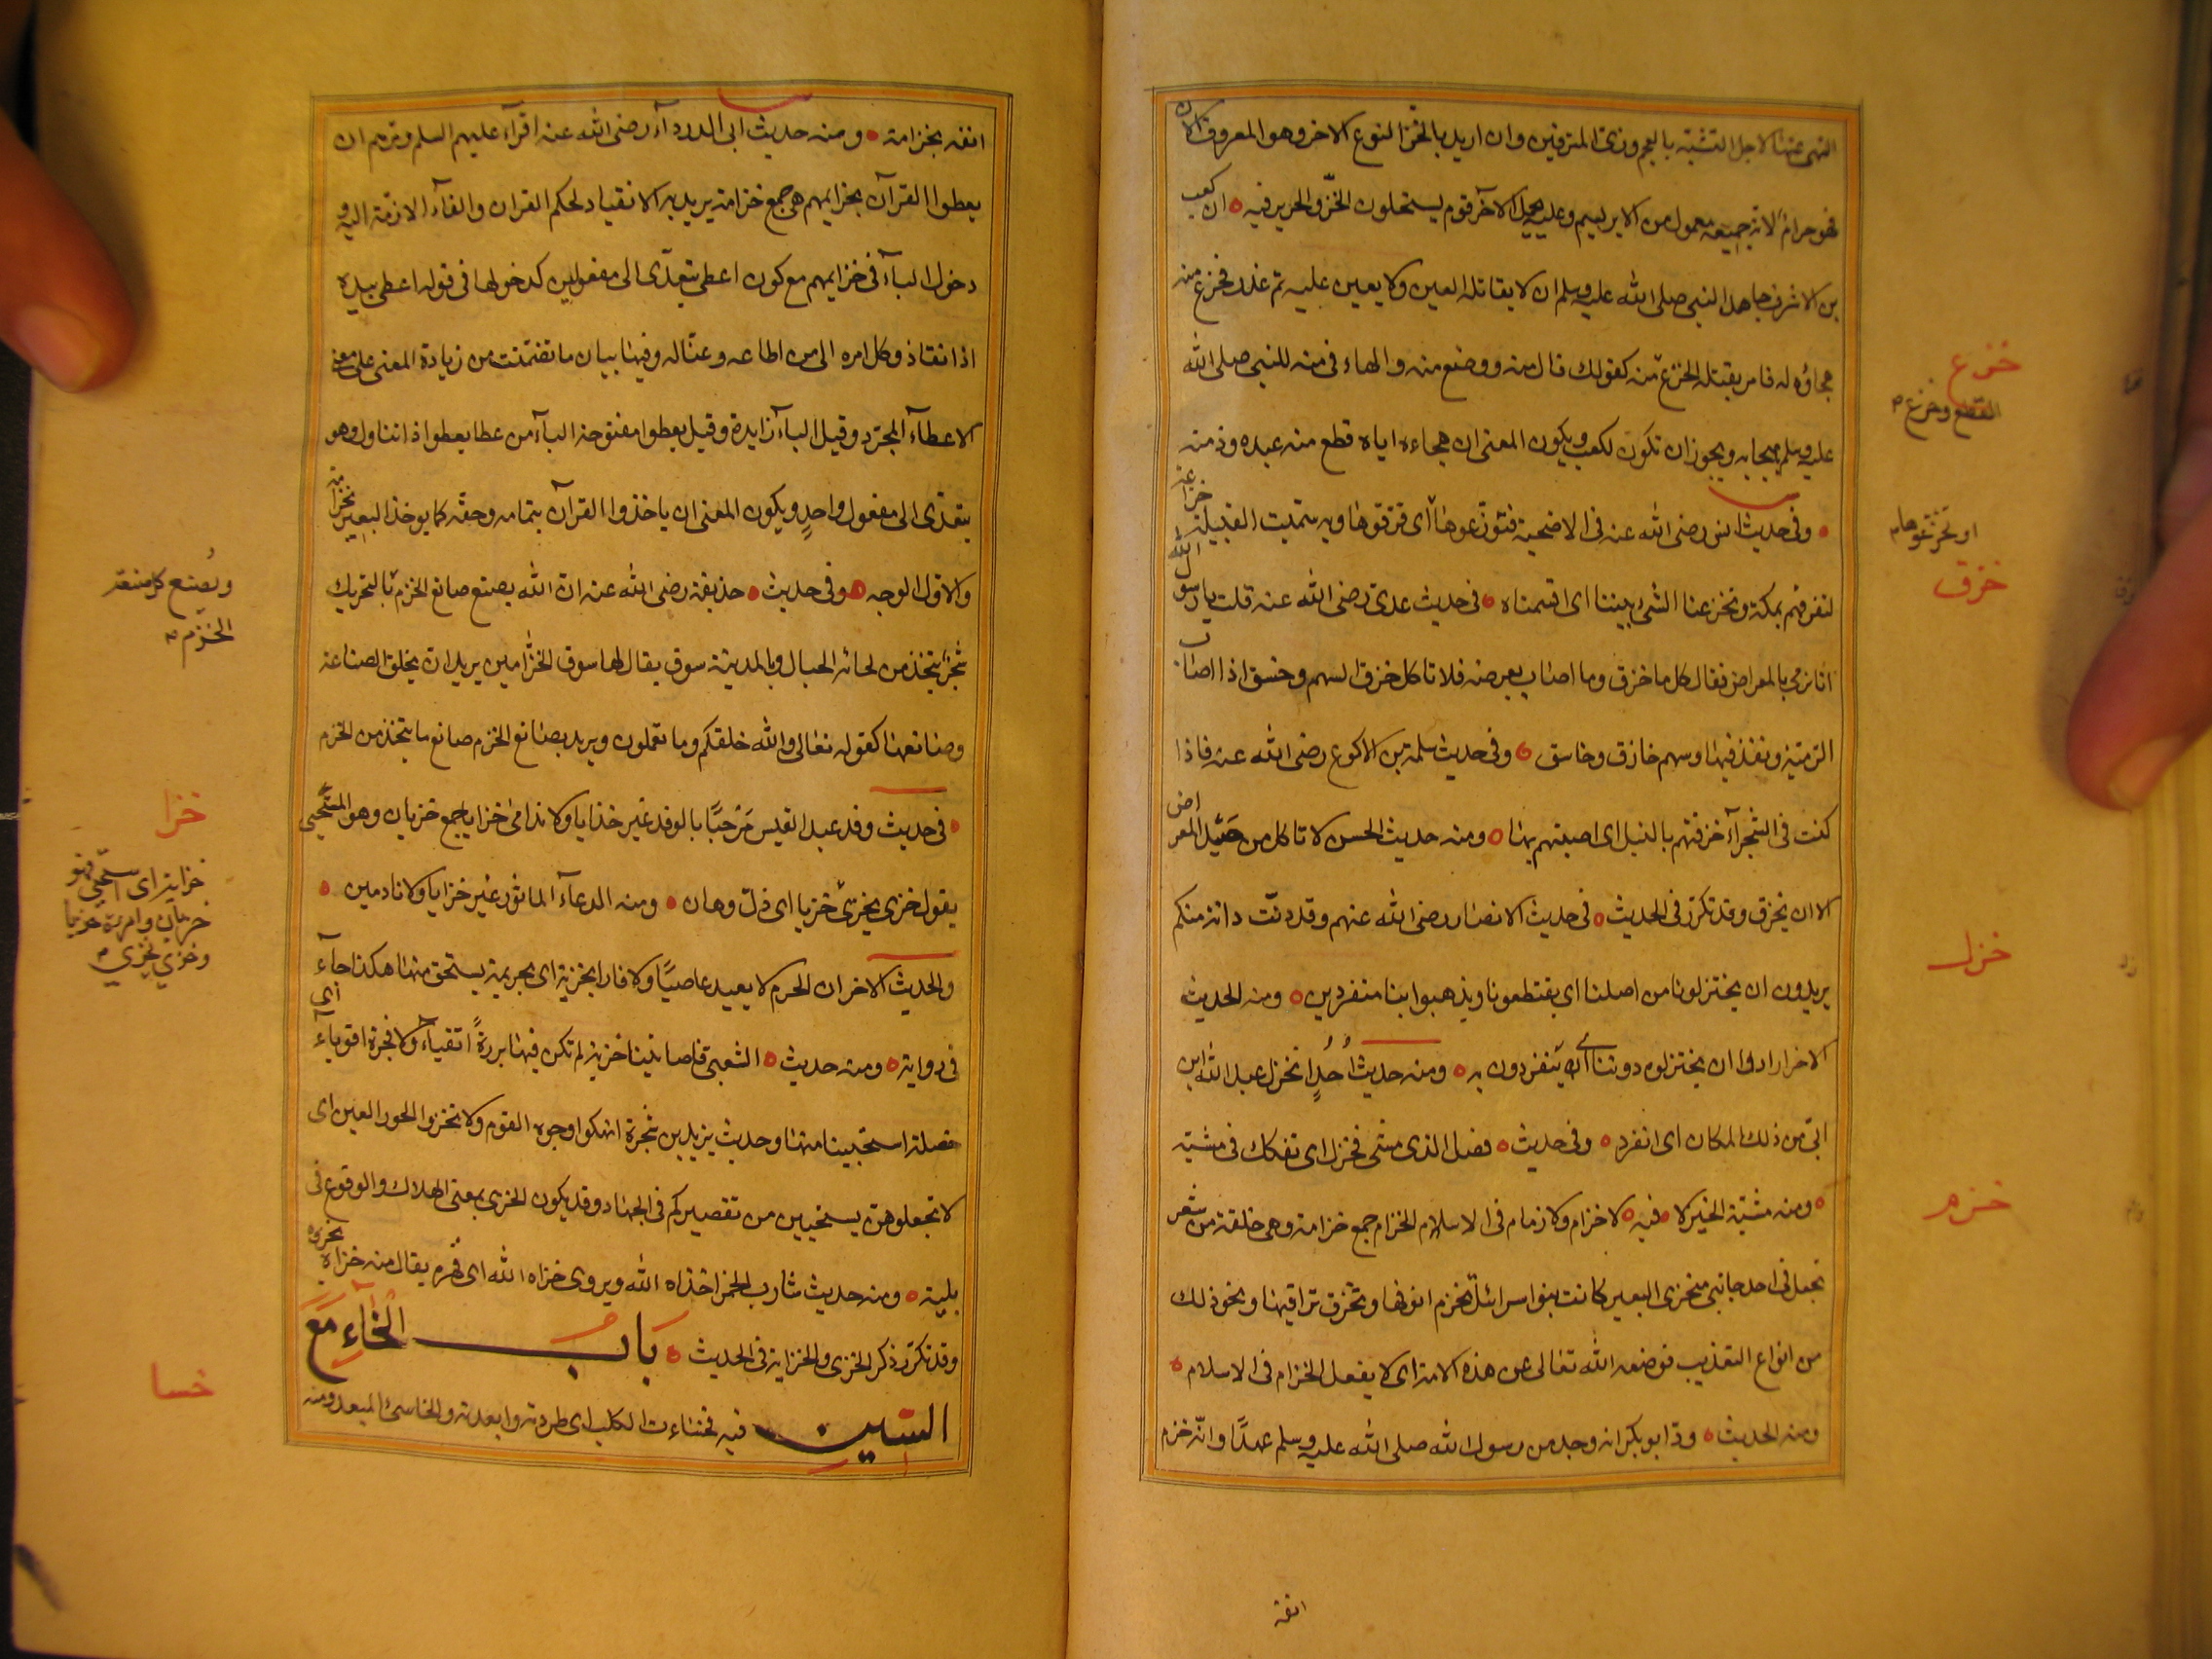 النهى عنها لاجل التشبّه بالعجم وزىّ المترفين وان اريد بالخز النوع الاخر وهو المعروف الان
فهو حرام لانّ جميعه معمول من الابريسم وعليه يحمل الآخر قوم يستحلون الخزّ والحرير فيه ان كعب
بن الاشرف جاهد النبي صلى الله عليه وسلم ان لا يقاتله العين ولا يعين عليه ثم غدر فخزع منه
هجاؤه له فامر بقتله الخزع منه كقولك نال منه ووضع منه والهاء فى منه للنبي صلى الله
خزع
القطع وخزع
عليه وسلم هجابه ويجوز ان تكون لكعب ويكون المعنى ان هجاءه اياه قطع منه عهده وذمته
وفى حديث انس رضى الله عنه فى الاضحية فتوزّعوها اى فرّقوها وبه سمّيت القبيلة خزاعة
او تخزّعوها
لتفرقهم بمكة وتخزعنا الشئ بيننا اى اقتسمناه فى حديث عدى رضى الله عنه قلت يا رسول الله
خزق
انا نرمى بالمعراض فقال كل ما خزق وما اصاب بعرضه فلا تاكل خزق السهم وخسق اذا اصاب
الرمية ونفذ فيها وسهم خازق وخاسق وفى حديث سلمة بن الاكوع رضى الله عنه فاذا
كنت فى الشجرآء خزقتهم بالنبل اى اصبتهم بها ومنه حديث الحسن لا تاكل من صيد المعراض
الا ان يخزق وقد تكرّر فى الحديث فى حديث الانصار رضى الله عنهم وقد دفّت دافة منكم
خزل
يريدون ان يختزلونا من اصلنا اى يقتطعونا ويذهبوا بنا منفردين ومنه الحديث
الاخر ارادوا ان يختزلوه دوننا اى ينفردون به ومنه حديث أُحُدٍ انخزل عبد الله ابن
ابىّ من ذلك المكان اى انفرد وفى حديث فصل الذى مشى فخزل اى تفكك فى مشيته
ومنه مشية الخيزلا فيه لا خزام ولا زمام فى الاسلام الخزام جمع خزامة وهى حلقة من شعر
خزم
تجعل فى احد جانبى منخرى البعير كانت بنو اسرائل تخزم انوفها وتخرق تراقيها ونحو ذلك
من انواع التعذيب فوضعه الله تعالى عن هذه الامة اى لا يفعل الخزام فى الاسلام
ومنه الحديث ودّ ابو بكر انه وجد من رسول الله صلى الله عليه وسلم عهدًا وانّه خزم
انفه
انفه بخزامة ومنه حديث ابى الدردآء رضى الله عنه اقرآء عليهم السلم ومرهم ان
يعطوا القرآن بخزايمهم هى جمع خزامة يريد به الانقياد لحكم القران والقآء الازمّة اليه و
دخول البآء فى خزايمهم مع كون اعطى يتعدّى الى مفعولين كدخولها فى قوله اعطى بيده
اذا انقاد ووكل امره الى من اطاعه وعنا له وفيها بيان ما تضمنت من زيادة المعنى على معنى
الاعطآء المجرّد وقيل البآء زايدة وقيل يعطوا مفتوحة البآء من عطا يعطوا اذا تناول وهو
يتعدّى الى مفعول واحدٍ ويكون المعنى ان ياخذوا القرآن بتمامه وحقّه كما يوخذ البعير بخزامته
والاوّل الوجه وفى حديث حذيفة رضى الله عنه انّ الله يصنع صانع الخزم بالتحريك
ويُصنع كل صنعة
الخزم
شجر يتخذ من لحائه الحبال وبالمدينة سوق يقال لها سوق الخزّامين يريد انّ يخلق الصناعة
وصانعها كقوله تعالى والله خلقكم وما تعملون ويريد بصانع الخزم صانع ما يتخذ من الخزم
فى حديث وفد عبد القيس مَرْحبًا بالوفد غير خذايا ولا ندامى خزايا جمع خزيان وهو المستحيى
خزا
خزاية اى استحيى فهو
خزيان وامرءة خزيا
وخزي يخزي
يقول خزى يخزى خزيا اى ذلّ وهان ومنه الدعآء الماثور غير خزايا ولا نادمين
والحديث الاخر ان الحرم لا يعيد عاصيًا ولا فارا بخزية اى بجريمة يستحق منها هكذا جآء
فى رواية ومنه حديث الشعبى فاصابتنا خزية لم تكن فيها بررةً اتقياء ولا فجرة اقويآء اى
خصلة استحيينا منها وحديث يزيد بن شجرة انهكوا وجوه القوم ولا تخزوا الحور العين اى
لا تجعلوهنّ يستحيين من تقصيركم فى الجهاد وقد يكون الخزى بمعنى الهلاك والوقوع فى
بلية ومنه حديث شارب الخمر اخذاه الله ويروى خزاه الله اى قهره يقال منه خزاه يخزوه
وقد تكرّر ذكر الخزى والخزاية فى الحديث بَابُ الْخَاءِ مَعَ
السّين فيه فخسَاءت الكلب اى طردته وابعدته والخاسئ المبعد ومنه
خسا